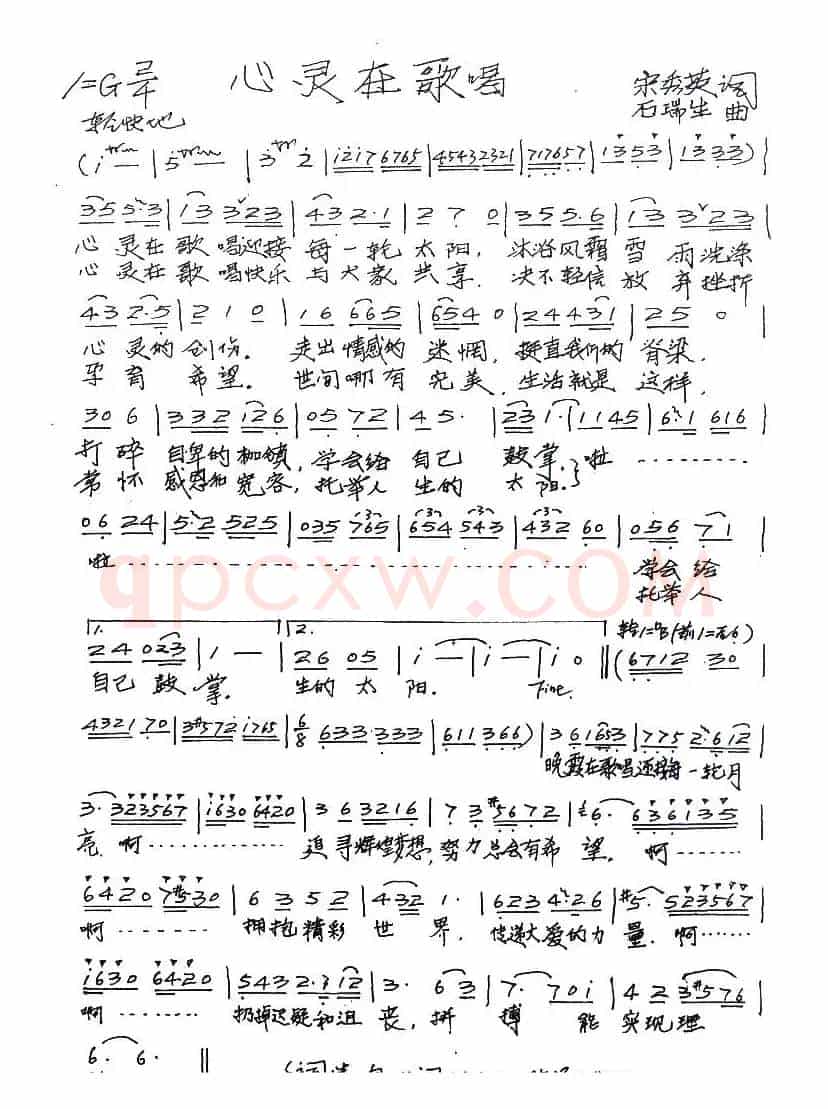 心灵在歌唱
1=G 2/4
宋秀英 词
轻快地
石瑞生 曲
(i — | 5 — | 3 2 | i2i7 6765 | 45432321 | 717657 | 1353 | 1333 )
355·3 | 13 323 | 432·1 | 2 7 0 | 355·6 | 13 323 |
心灵在歌唱迎接每一轮太阳,沐浴风霜雪雨洗涤
心灵在歌唱快乐与大家共享.决不轻信放弃挫折
432·5 | 210 | 16 665 | 6540 | 24431 | 25 0 |
心灵的创伤。走出情感的迷惘,挺直我们的脊梁,
孕育希望。世间哪有完美,生活就是这样,
306 | 332 126 | 0572 | 45· | 231· | 1145 | 6·1 616 |
打碎自卑的枷锁,学会给自己鼓掌,啦
常怀感恩和宽容,托举人生的太阳。
06 24 | 5·2 525 | 035 765 | 654 543 | 432 60 | 056 71 |
啦 学会给
托举人
1. 2.
24 023 | 1 — | 26 05 | i — | i — | i 0 ‖ (6712 30
自己鼓掌。生的太阳。Fine.
4321 70 | 3#572 1765 | 6/8 633 333 | 611 366 ) | 3 61653 | 775 2·612 |
晚霞在歌唱迎接每一轮月
3·323567 | i630 6420 | 3 6 3216 | 7 3 #5672 | 6· 636135 |
亮,啊 追寻辉煌梦想,努力总会有希望。啊
6420 7#530 | 6 3 5 2 | 432 1· | 623 4·26 | #5· 523567 |
啊 拥抱精彩世界,传递大爱的力量.啊
i630 6420 | 5432·312 | 3· 63 | 7· 70i | 4 2 3#576 |
啊 扔掉迟疑和沮丧,拼搏能实现理
6· 6· ‖
qpcxw.COM